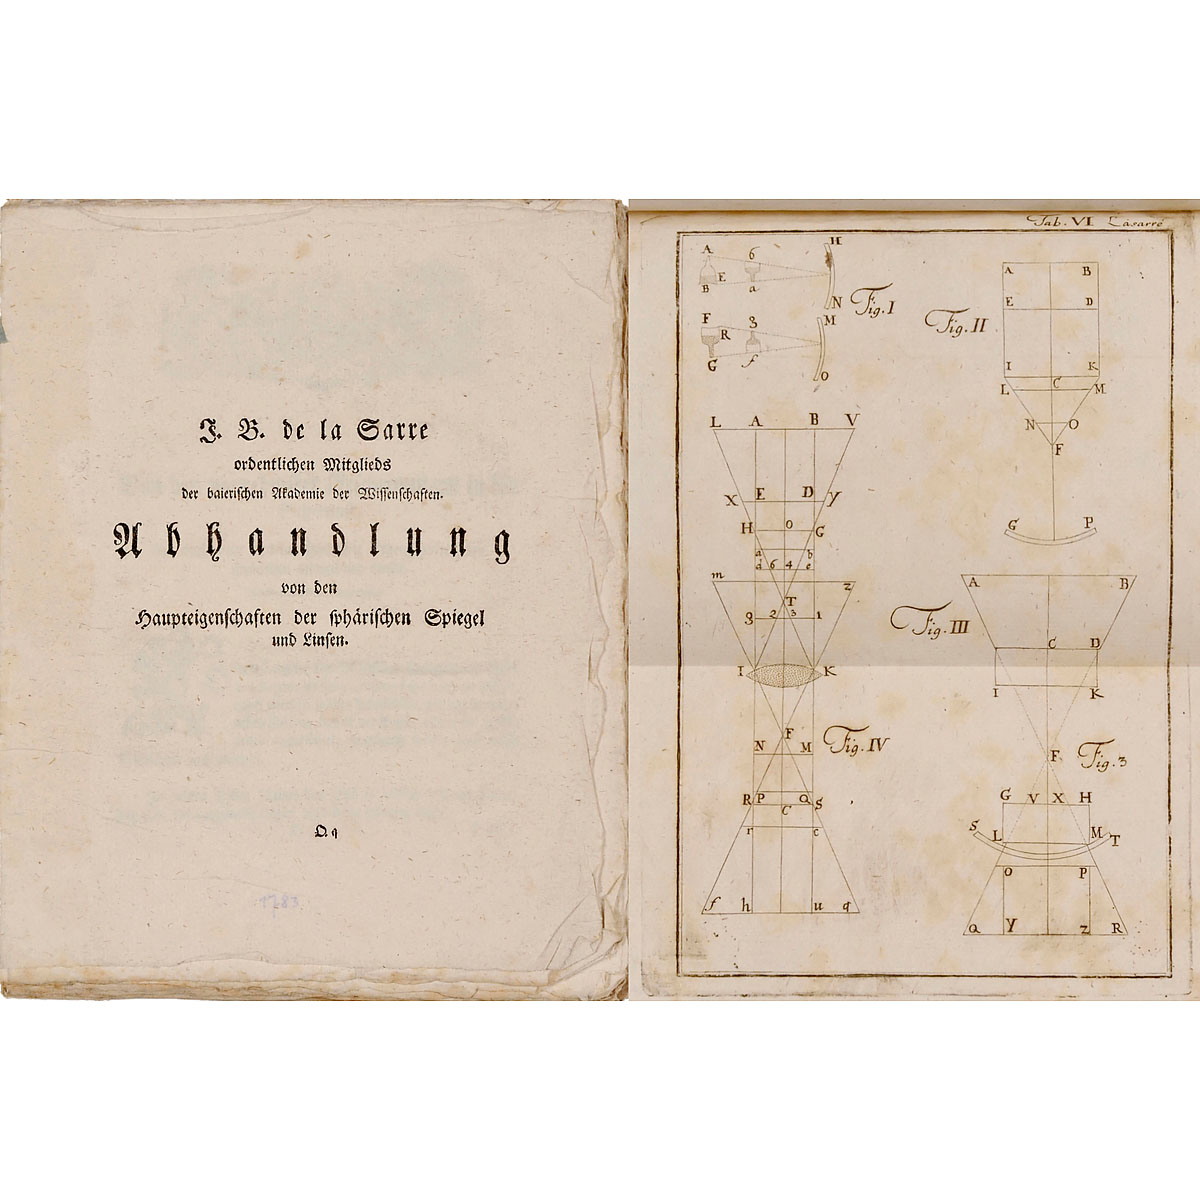 J. B. de la Sarre
ordentlichen Mitglieds
der baierischen Akademie der Wissenschaften.
Abhandlung
von den
Haupteigenschaften der sphärischen Spiegel
und Linsen.
Q q
1783
Tab. VI Lasarre
A 6 H
E
B a N Fig. I
F 8 M
R
G f O
Fig. II
A B
E D
I K
L C M
N O
F
G P
L A B V
X E D y
H o G
a b
d 6 4 e
m z
T
g 2 3 1
I K
F
N M Fig. IV
R P Q S
C
r c
f h u q
A B
Fig. III
C D
I K
F Fig. 3
G V X H
S L M T
O P
Q Y z R